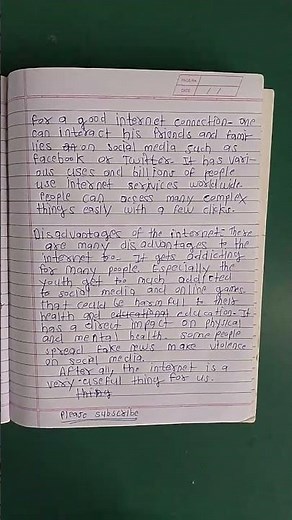 DATE / /
for a good internet connection- one
can interact his friends and fami-
lies on social media such as
facebook or Twitter. It has vari-
ous uses and billions of people
use internet serjvices worldwide.
People can access many complex
things easily with a few clicks.
Disadvantages of the internet: There
are many disadvantages to the
internet too. It gets addicting
for many people. Especially the
youth get too much addicted
to social media and online games
that could be harmfull to their
health and educational education. It
has a direct impact on physical
and mental health. some people
spread fake news make violence
on social media.
After all the internet is a
very useful thing for us.
thing
Please subscribe